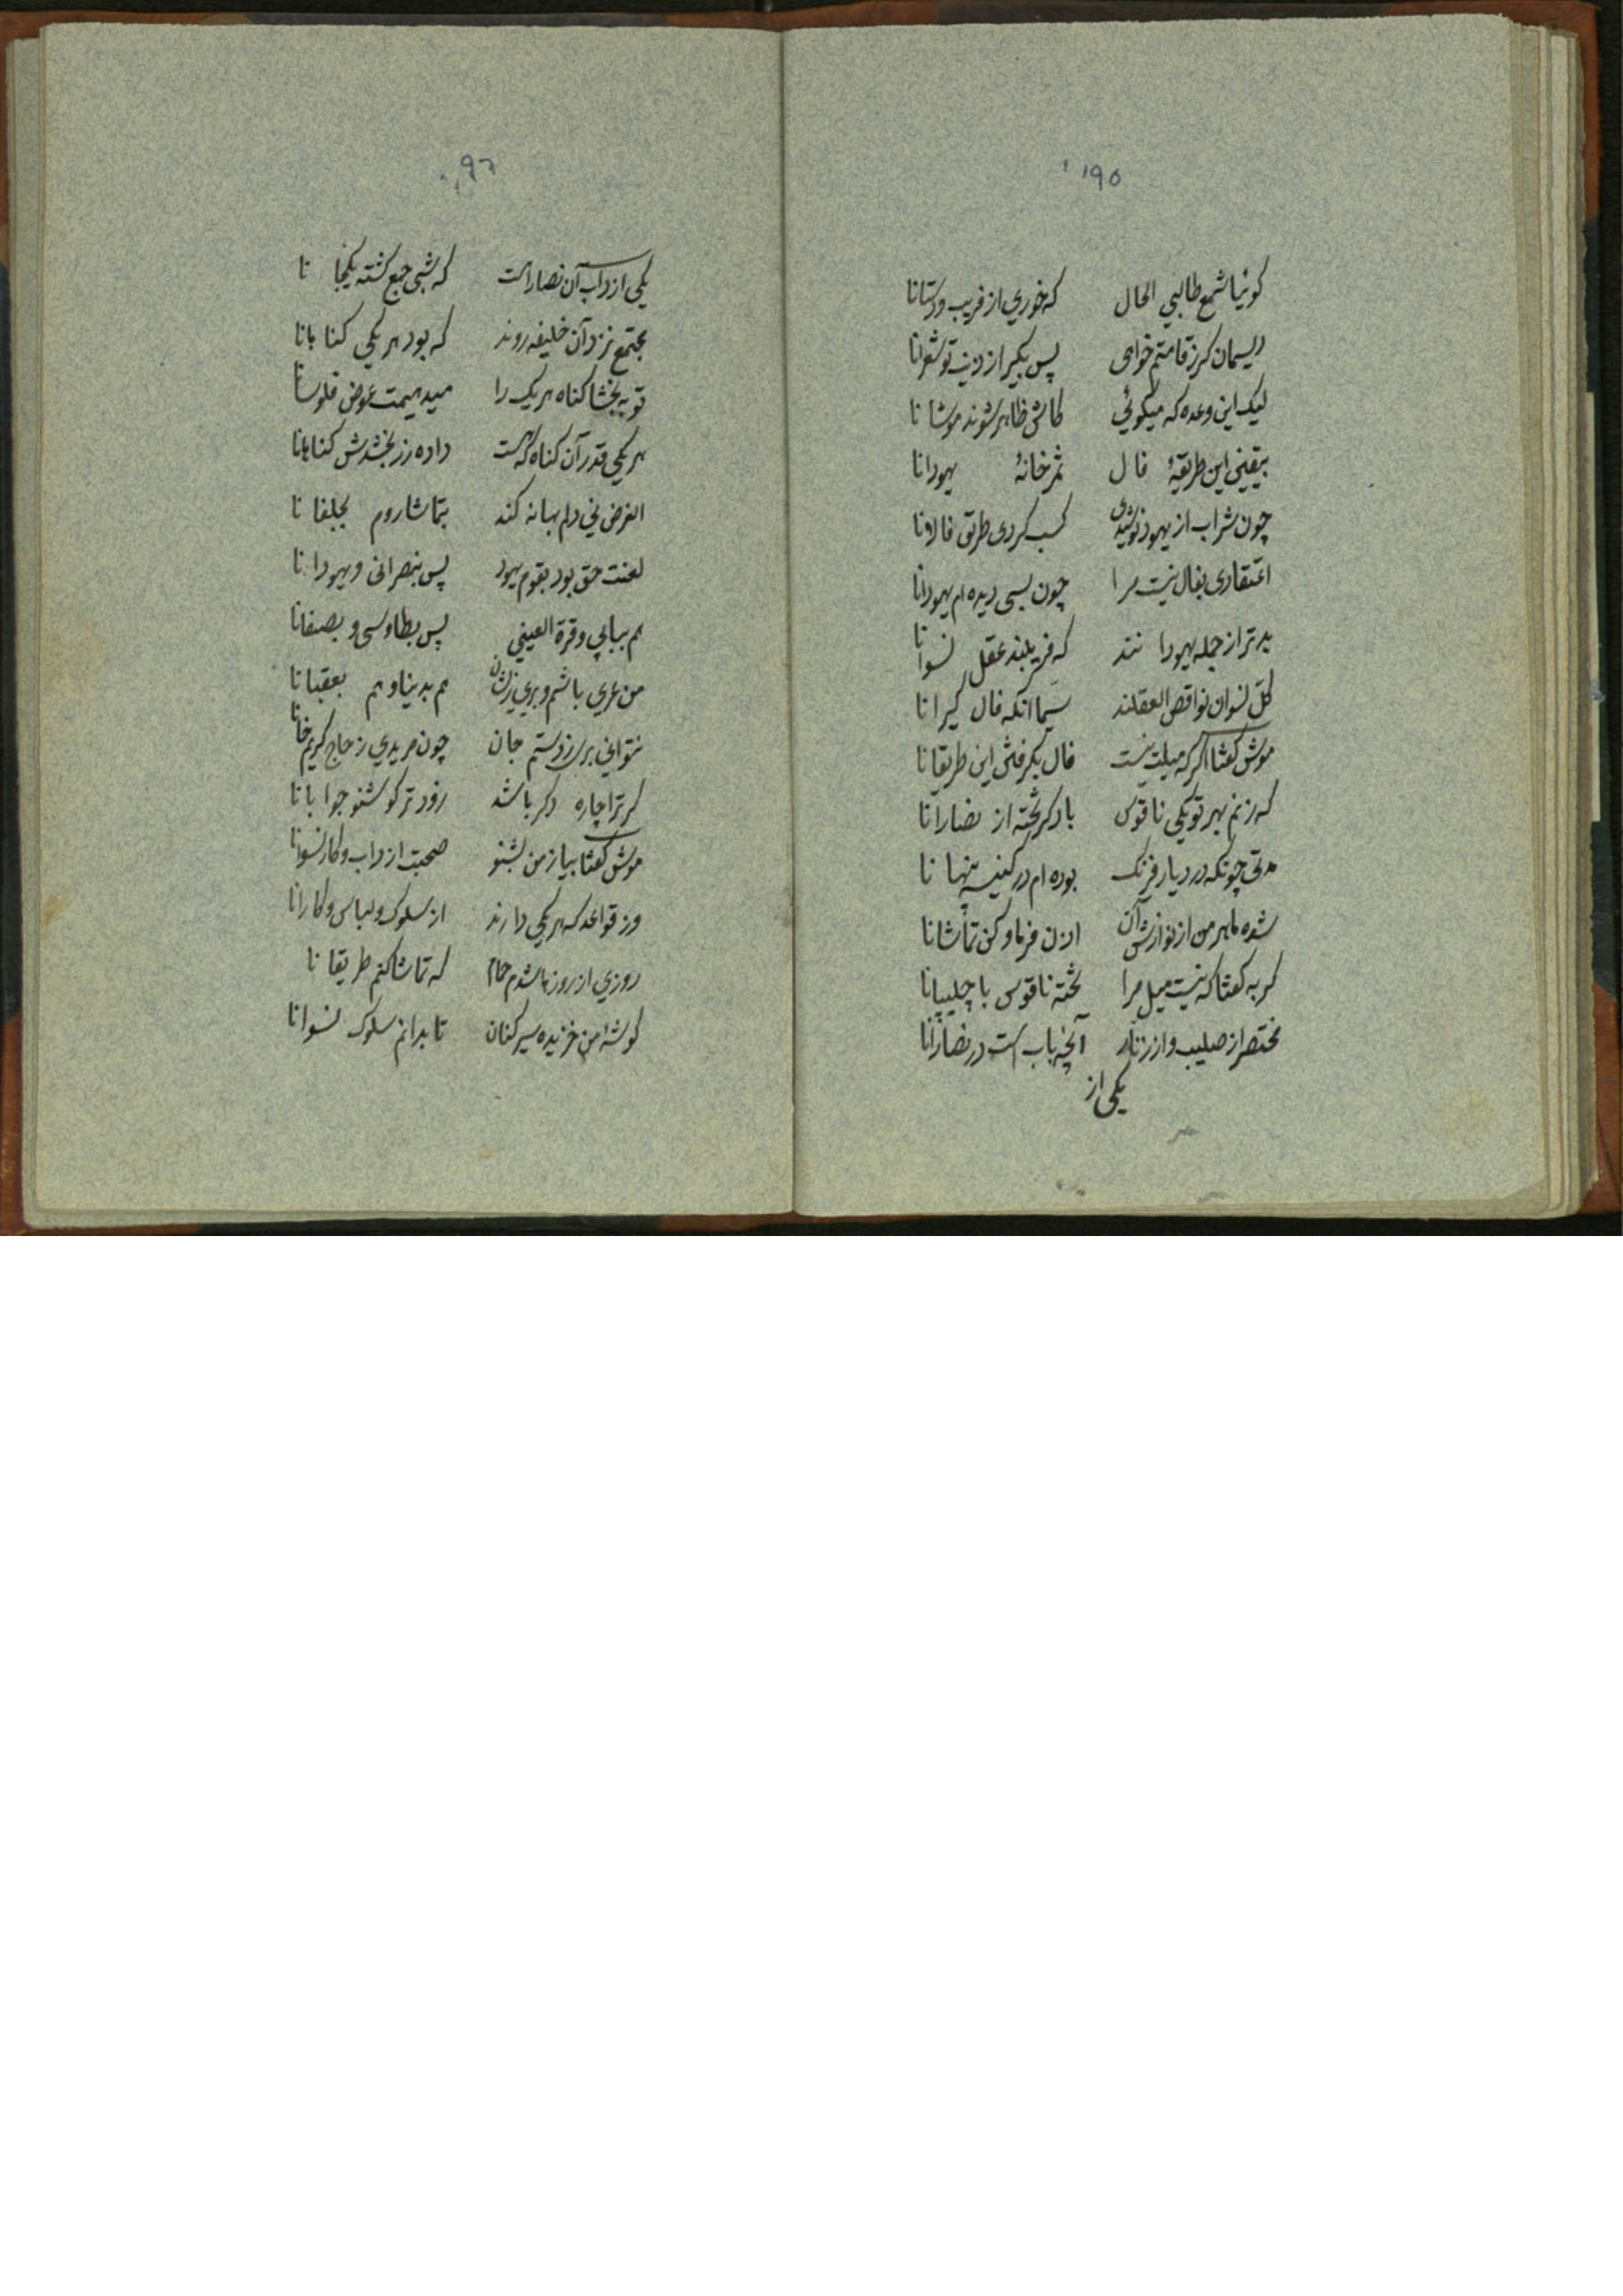 ۱۹۵
گوئیا شمع طالبی الحال که خوری از فریب و دستانا
ریسمان گر ز قامتم خواهی پس بگیر از دنبت تو شعرانا
لیک این وعده که میگوئی کاش ظاهر شوند موشانا
بیقینی این طریقهٔ فال ثمر خانهٔ یهودانا
چون شراب از یهود نوشیدی کسب کردی طریق فالانا
اعتقادی بفال نیست مرا چون بسی دیده ام یهودانا
بدتر از جمله یهودانند که فریبند عقل نسوانا
کلّ نسوان نواقص العقلند سیما انکه فال گیرانا
موش گفتا اگر که میلت نیست فال بگرفتن این طریقانا
که زنم بهر تو یکی ناقوس یاد گر تخته از نصارانا
مدتی چونکه در دیار فرنگ بوده ام در کنیسه پنهانا
شده ماهر من از نوازش آن اذن فرما و کن تماشانا
گربه گفتا که نیست میل مرا تخته ناقوس با چلیپانا
مختصر از صلیب و از زنار آنچه باب است در نصارانا
یکی از
۱۹۶
یکی از داب آن نصارا است که شبی جمع گشته یکجانا
مجتمع نزد آن خلیفه روند که بود هر یکی گناهانا
تو به بخشا گناه هر یک را میدهیمت عوض فلوسانا
هر یکی قدر آن گناه که هست داده زر بخشدش گناهانا
الغرض نی دلم بهانه کند بتماشا روم بجلفانا
لعنت حق بود بقوم یهود پس بنصرانی و یهودانا
هم ببابی و قرة العینی پس بطاوسی و بصفانا
من عری باشم و بری زیشان هم بدینا و هم بعقبانا
نتوانی بری ز دستم جان چون مریدی ز حاج کریمخانا
گر ترا چاره دگر باشد زودتر گو شنو جوابانا
موش گفتا بیا ز من بشنو صحبت از داب و کار نسوانا
وز قواعد که هر یکی دارند از سلوک و لباس و کارانا
روزی از روزها شدم حمام که تماشا کنم طریقانا
گوشه امن خزیده سیر کنان تا بدانم سلوک نسوانا